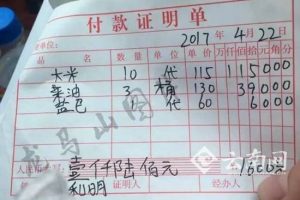 付款证明单
2017年4月22日
品名 数量 单位 单价 万仟佰拾元角分
大米 10 代 115 115000
菜油 3 桶 130 39000
盐巴 1 代 60 6000
龙马山图
人民币 壹仟陆佰元 1600元
和明 证明人 经办人
云南网